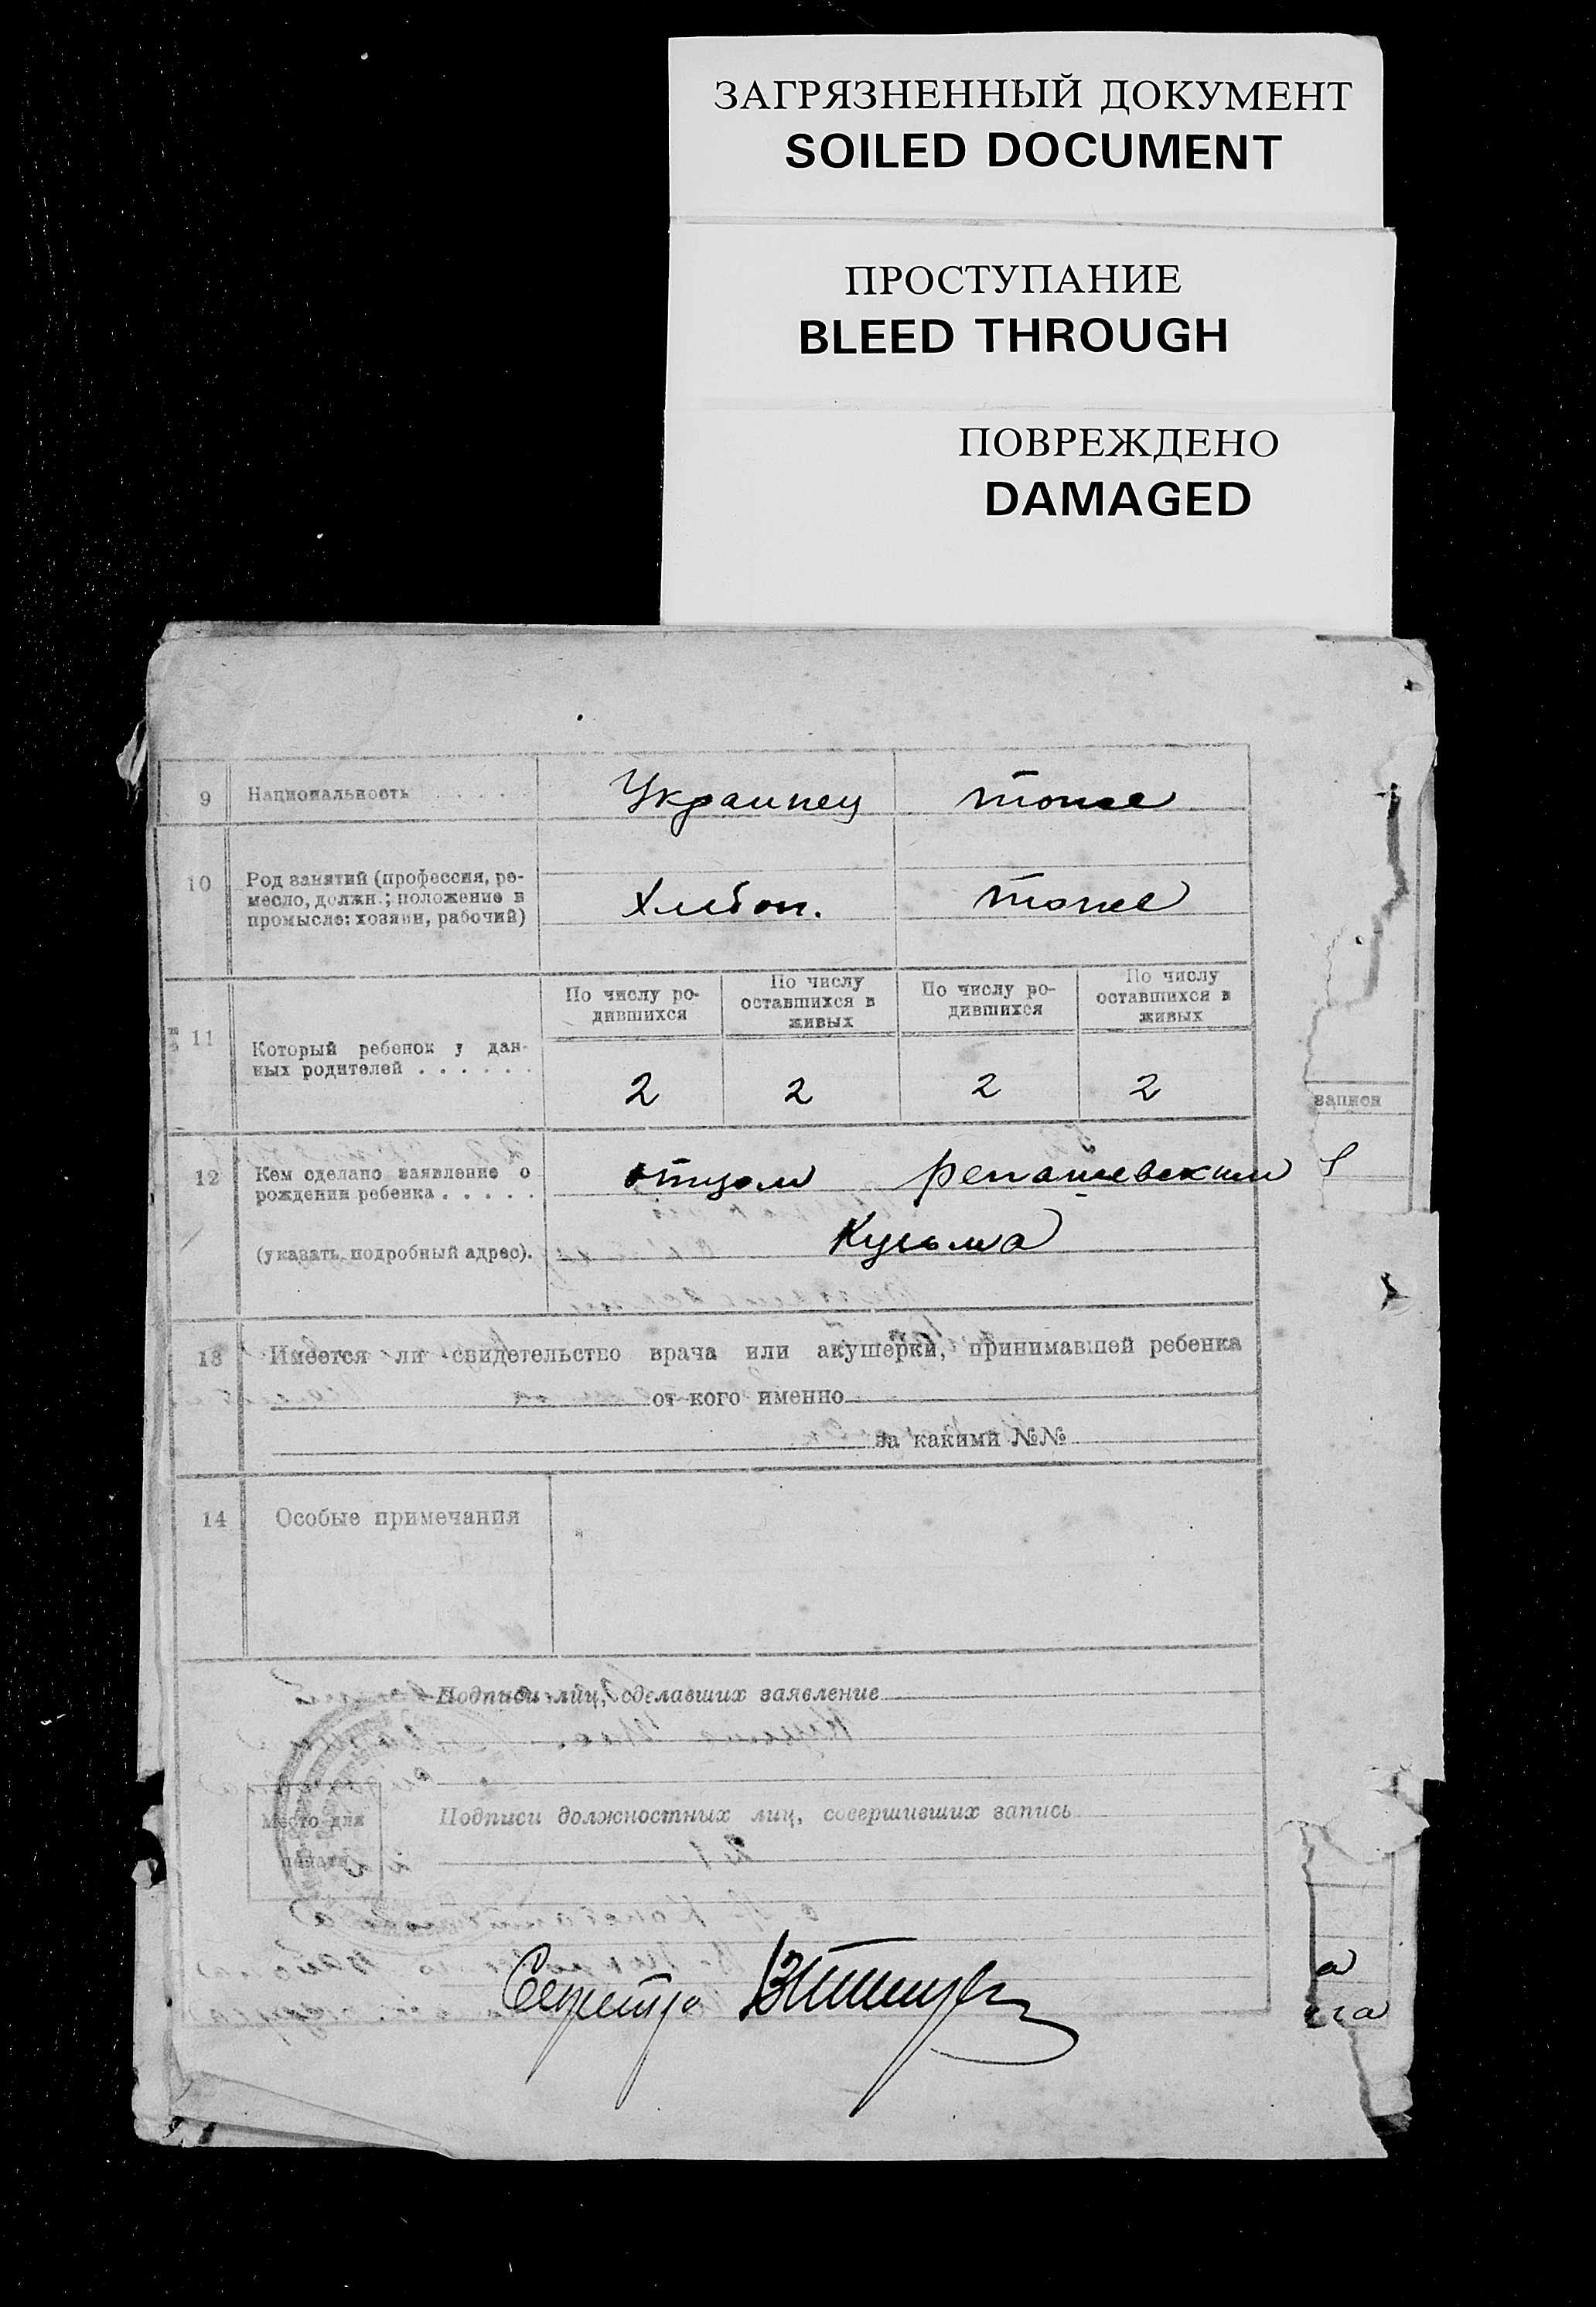 ЗАГРЯЗНЕННЫЙ ДОКУМЕНТ
SOILED DOCUMENT
ПРОСТУПАНИЕ
BLEED THROUGH
ПОВРЕЖДЕНО
DAMAGED
9 Национальность . . . . . Украинец тоже
10 Род занятий (профессия, ре-
месло, должн.; положение в
промысле: хозяин, рабочий) Хлебоп. тоже
По числу ро-
дившихся
По числу
оставшихся в
живых
По числу ро-
дившихся
По числу
оставшихся в
живых
11 Который ребенок у дан-
ных родителей . . . . . .
2 2 2 2
записи
12 Кем сделано заявление о
рождении ребенка . . . . .
отцом Репашевским
(указать подробный адрес). Кузьма
13 Имеется ли свидетельство врача или акушерки, принимавшей ребенка
от кого именно
за какими №№
14 Особые примечания
Подписи лиц, сделавших заявление
Место для
печати
Подписи должностных лиц, совершивших запись
Секретар